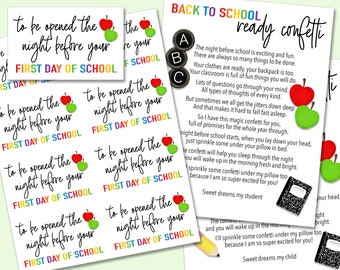 to be opened the
night before your
FIRST DAY OF SCHOOL
to be opened the
night before your
FIRST DAY OF SCHOOL
to be opened the
night before your
FIRST DAY OF SCHOOL
to be opened the
night before your
FIRST DAY OF SCHOOL
to be opened the
night before your
FIRST DAY OF SCHOOL
to be opened the
night before your
FIRST DAY OF SCHOOL
to be opened the
night before your
FIRST DAY OF SCHOOL
BACK TO SCHOOL
ready confetti
A
B
C
The night before school is exciting and fun.
There are always so many things to be done.
Your clothes are ready, your backpack is too.
Your classroom is full of fun things will you do.
Lots of questions go through your mind
All types of thoughts of every kind.
But sometimes we all get the jitters down deep
And that makes it hard to fall fast asleep.
So I have this magic confetti for you,
full of promises for the whole year through.
night before school starts, when you lay down your head,
just sprinkle some under your pillow in bed.
confetti will help you sleep through the night
you will wake up in the morning fresh and bright.
sprinkle some confetti under my pillow too
because I am so super excited for you!
Sweet dreams my student
you will wake up in the morning
I will sprinkle some confetti under my pillow too
because I am so super excited for you!
Sweet dreams my child